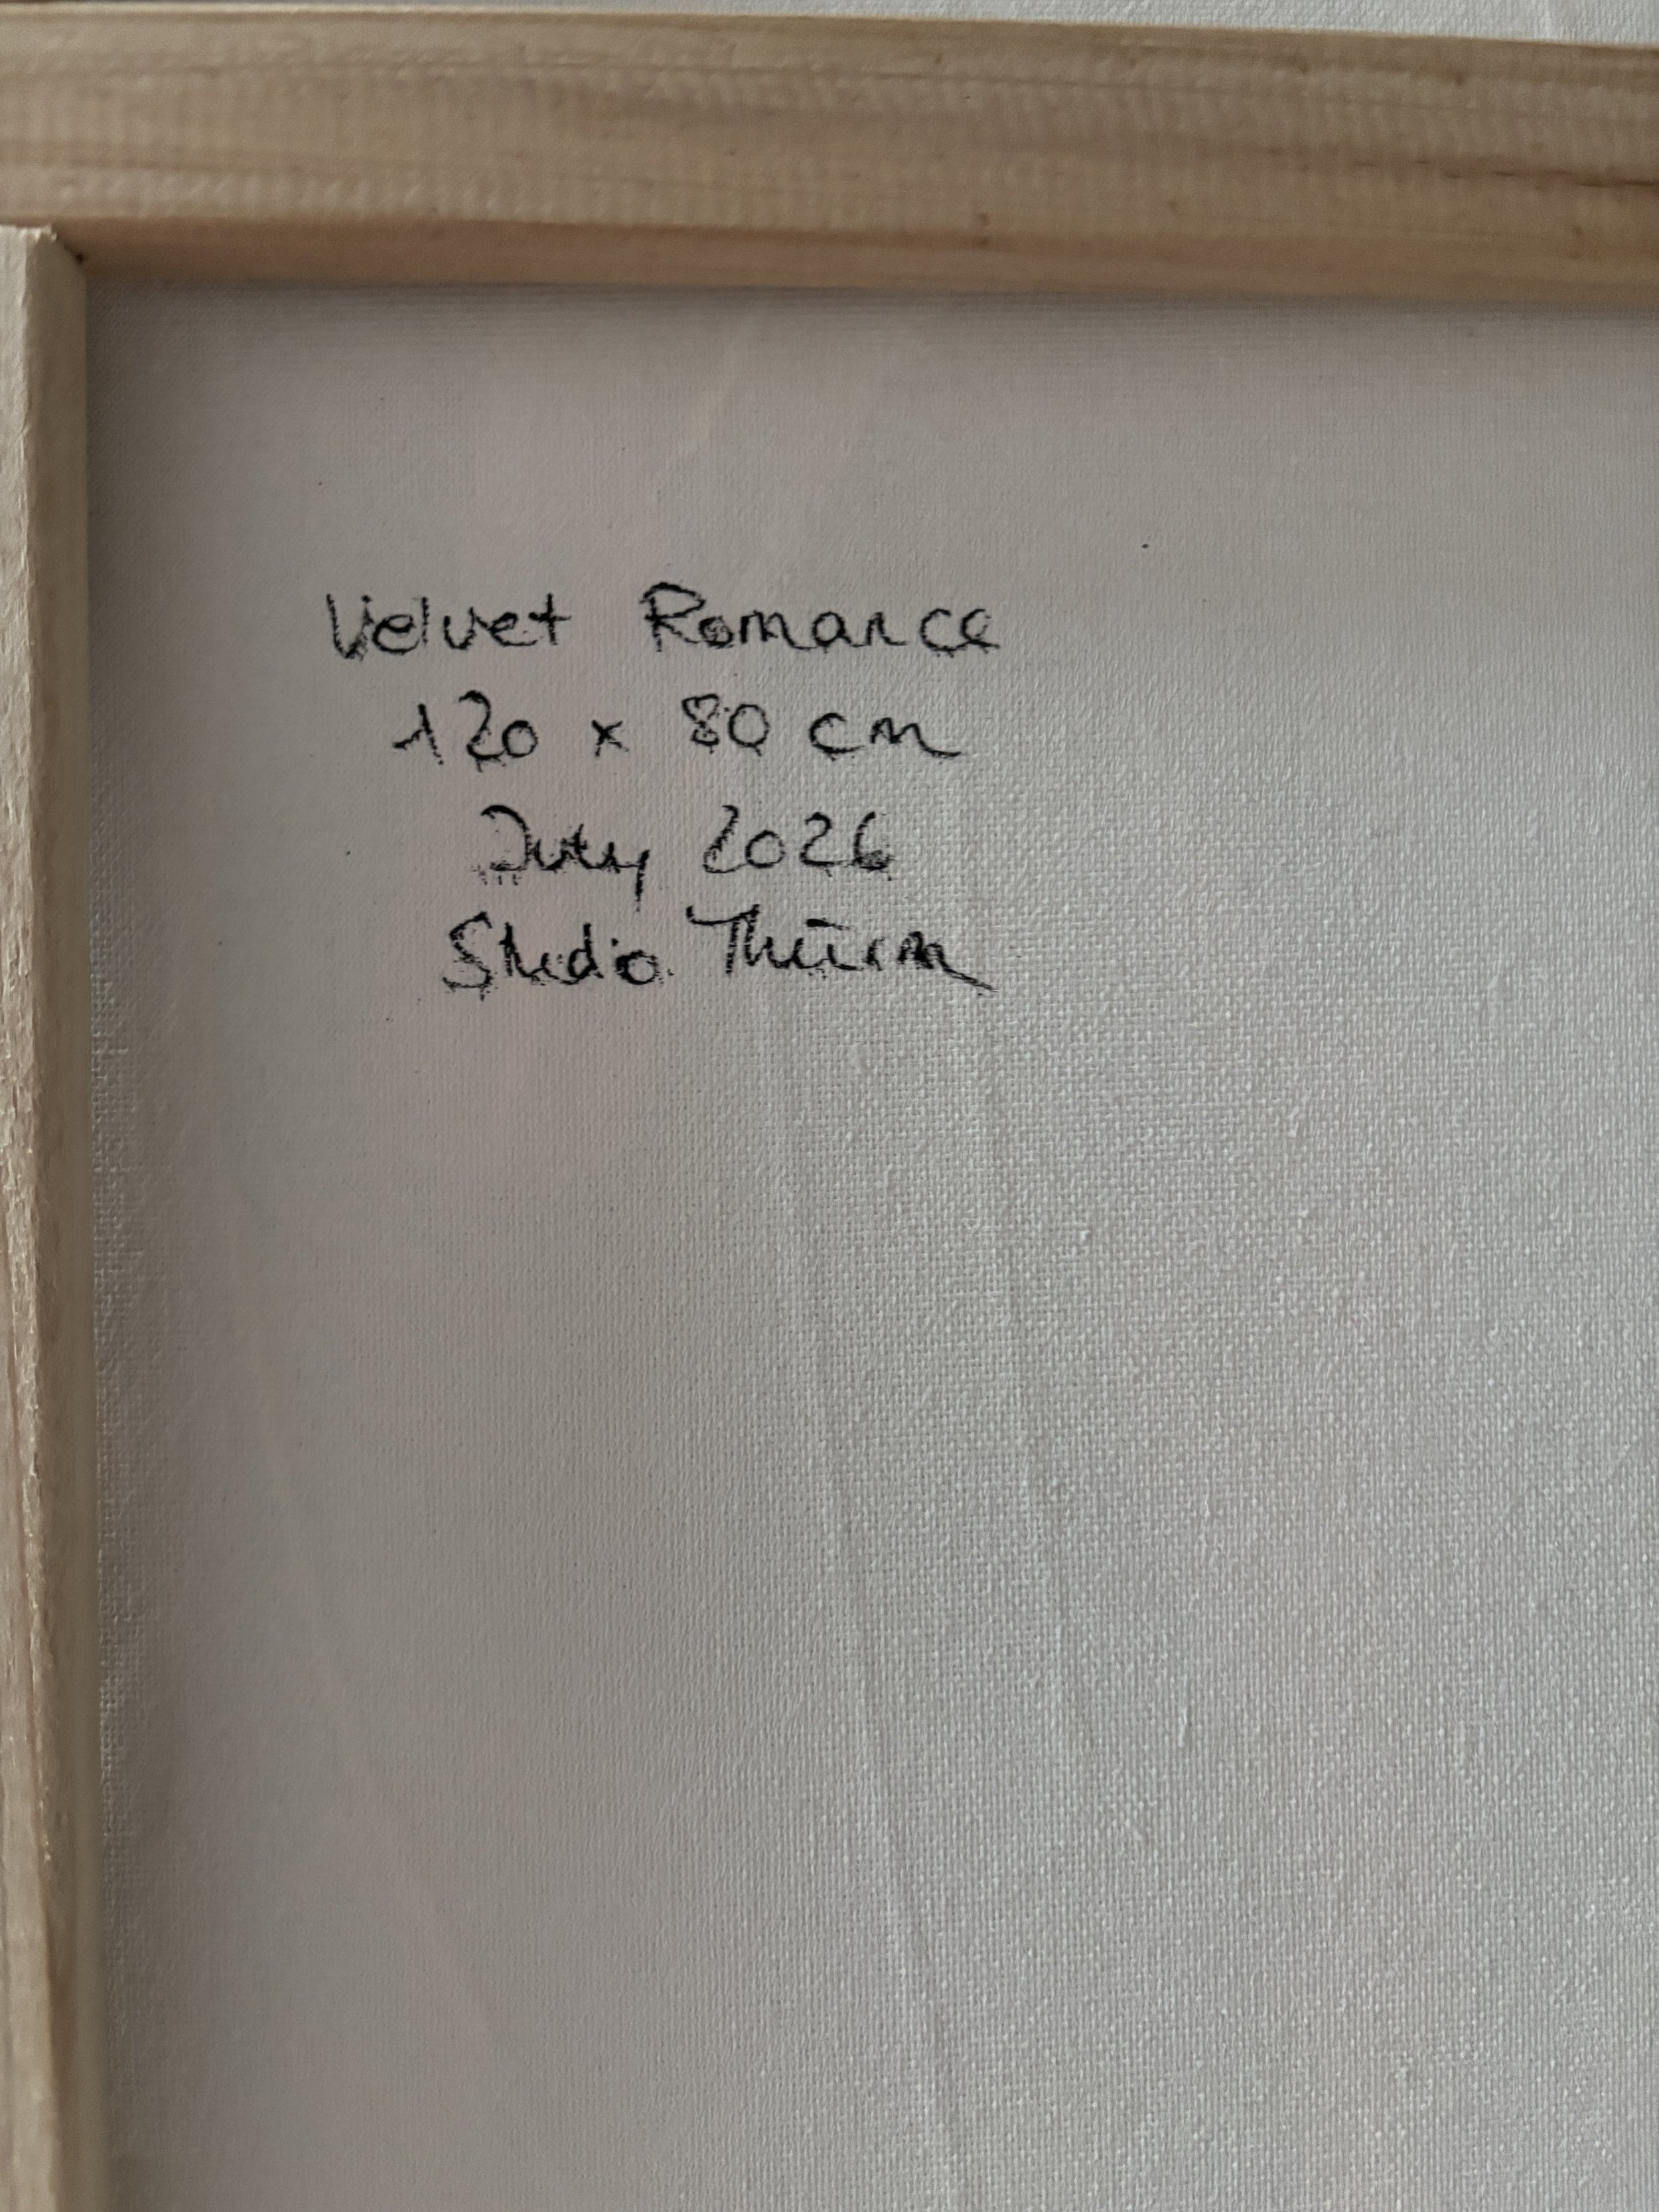 Velvet Romance
120 x 80 cm
July 2026
Studio